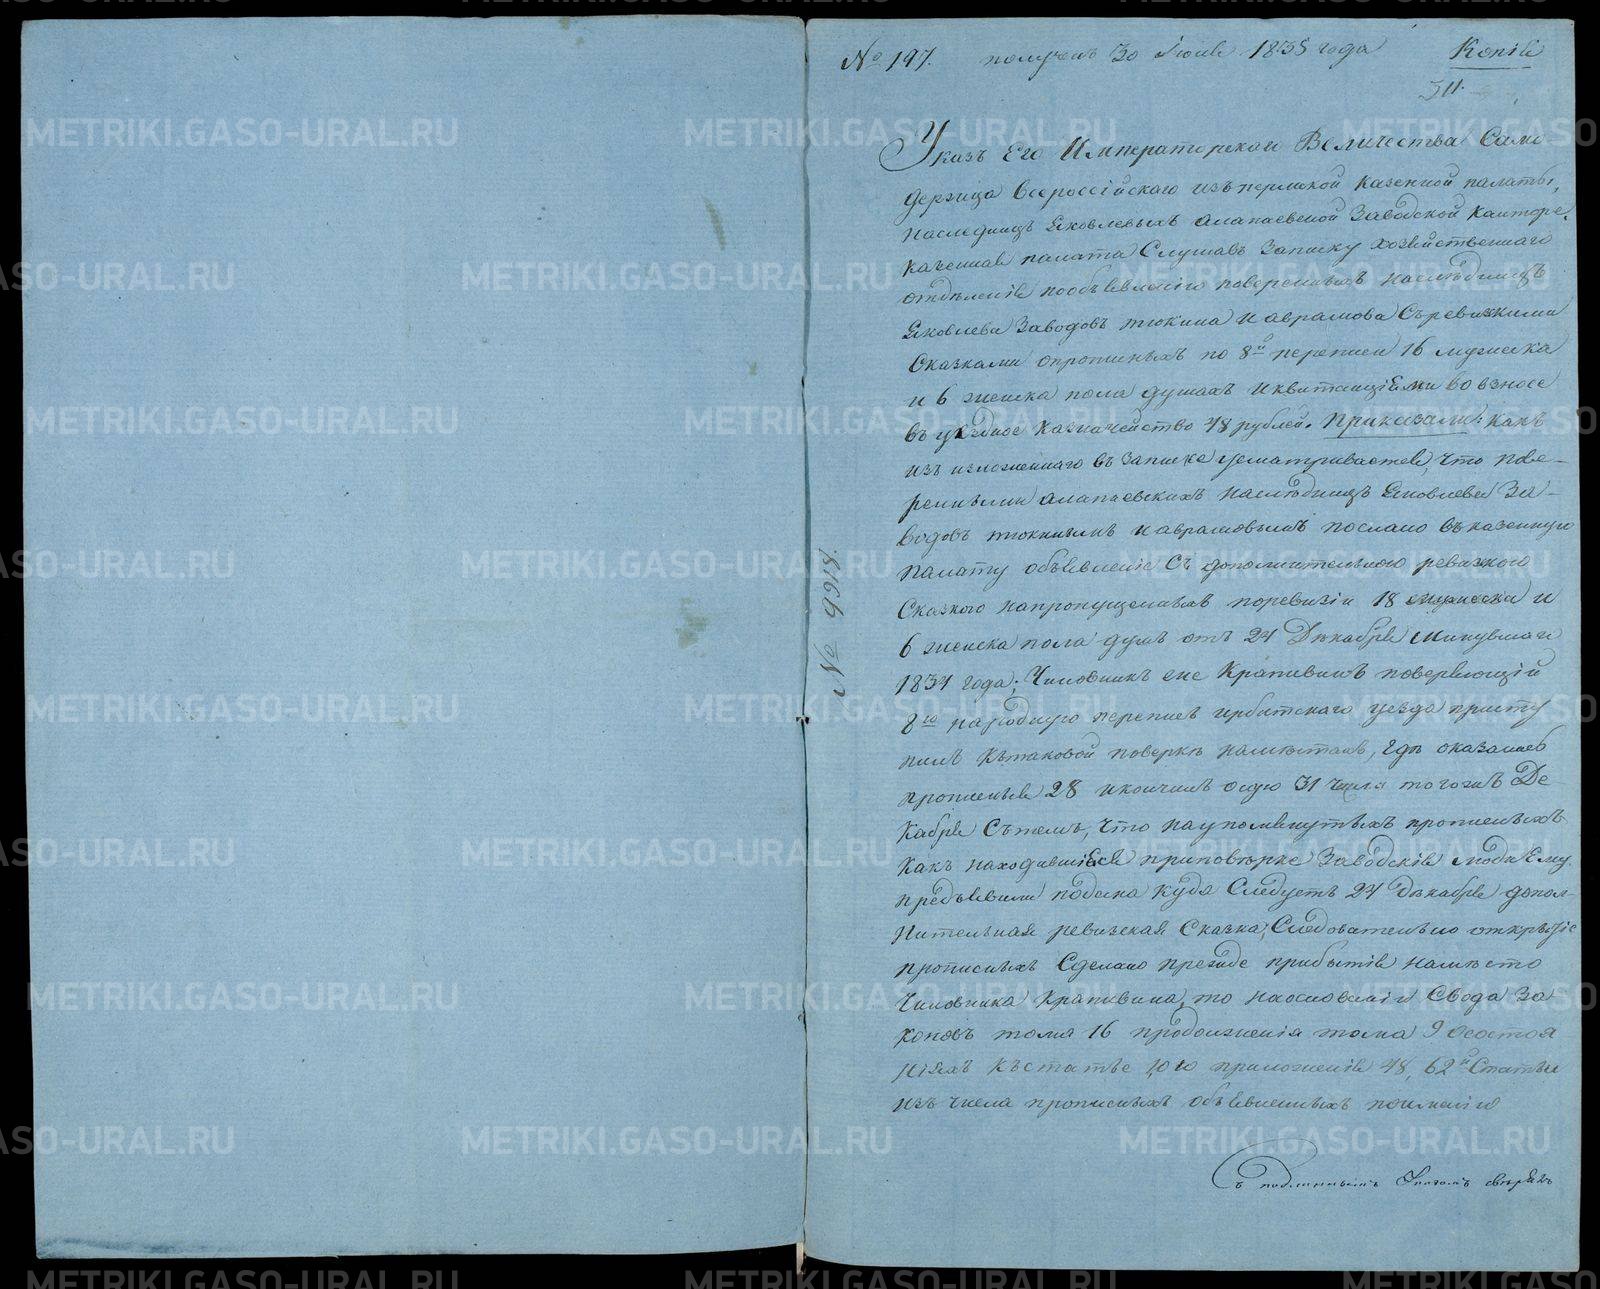 № 197. получен 30 Июне 1835 года Копія
311.
Указъ Его Императорскаго Величества Само
держца Всероссійскаго изъ пермской казенной палаты,
наслѣдницъ Яковлевыхъ алапаевской Заводской канторе,
казенная палата Слушавъ Записку хозяйственнаго
отдѣленія по объявленію повереныхъ наслѣдницъ
Яковлева Заводовъ тюкина и аврамова Съ ревизкими
Сказками о прописныхъ по 8й переписи 16 мужеска
и 6 женска пола душахъ и квитанціями во взносе
въ уездное казначейство 48 рублей. Приказали: какъ
изъ изложеннаго въ записке усматривается, что пове-
ренными алапаевскихъ наслѣдницъ Яковлева За-
водовъ тюкинымъ и аврамовымъ послано въ казенную
палату объявленіе Съ дополнительною ревизкою
Сказкою на пропущенныхъ по ревизіи 18 мужеска и
6 женска пола душъ отъ 24 Декабря минувшаго
1834 года; Чиновникъ же Крапивинъ поверяющій
8ю народную перепись ирбитскаго уезда присту
пилъ къ таковой поверкѣ на мѣстахъ, гдѣ оказались
прописныя 28 и кончилъ оную 31 числа того жъ Де-
кабря Съ темъ, что на упомянутыхъ прописныхъ
какъ находившіеся при повѣрке Заводскіе люди Ему
предъявили подана куда Следуетъ 24 Декабря допол-
нительная ревизская Сказка, Следовательно открытіе
прописныхъ Сделано прежде прибытія на мѣсто
Чиновника Крапивина, то на основаніи Свода За
коновъ тома 16 продолженія тома 9 о состоя
ніяхъ къ статье 1010 приложенія 48, 62й Статьи
изъ числа прописныхъ объявленныхъ по именію
Съ подлиннымъ
№ 9918.
METRIKI.GASO-URAL.RU